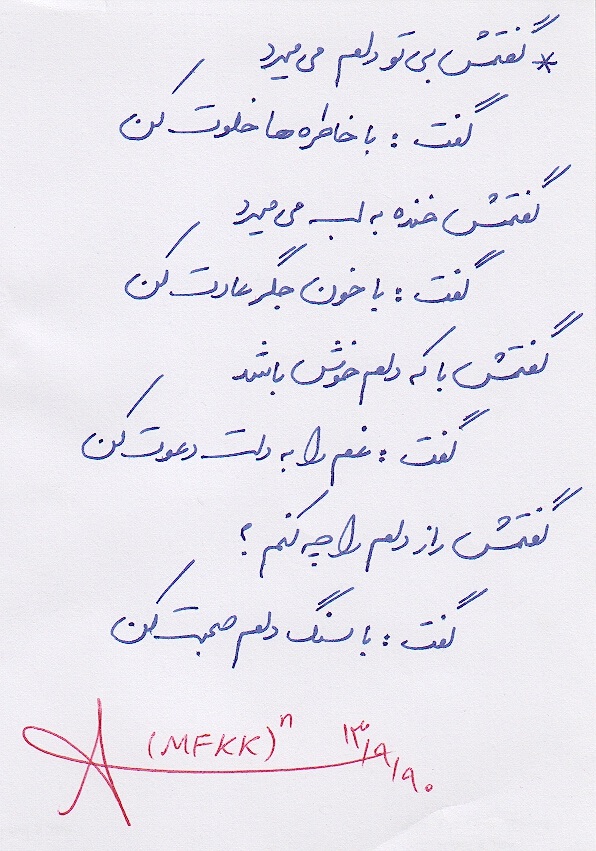 * گفتمش بی تو دلم می میرد
گفت : با خاطره ها خلوت کن
گفتمش خنده به لب می میرد
گفت : با خون جگر عادت کن
گفتمش با که دلم خوش باشد
گفت : غم را به دلت دعوت کن
گفتمش راز دلم را چه کنم ؟
گفت : با سنگ دلم صحبت کن
(MFKK)ⁿ ۹۰/۹/۱۳